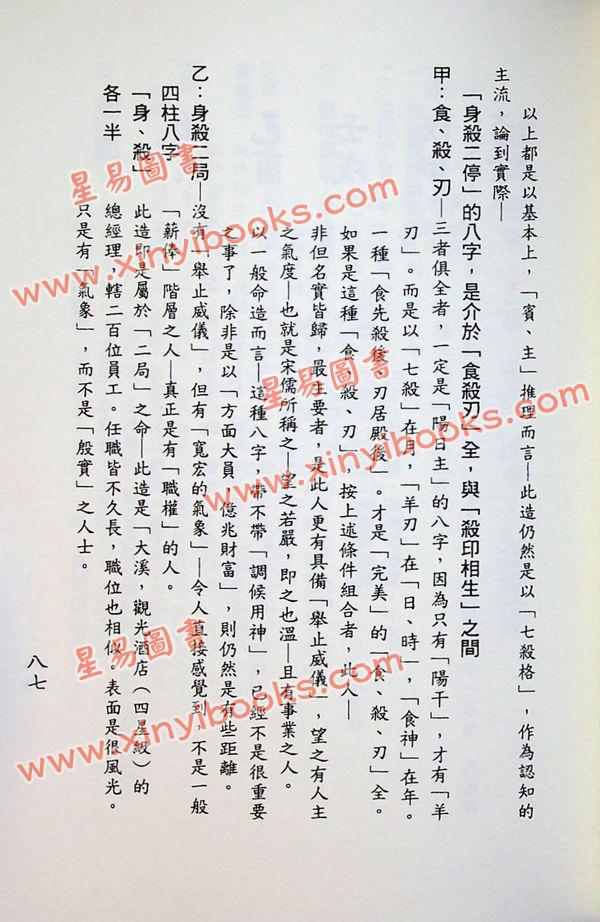 以上都是以基本上，「賓、主」推理而言—此造仍然是以「七殺格」，作為認知的
主流，論到實際—
「身殺二停」的八字，是介於「食殺刃」全，與「殺印相生」之間
甲：食、殺、刃—三者俱全者，一定是「陽日主」的八字，因為只有「陽干」，才有「羊
刃」。而是以「七殺」在月，「羊刃」在「日、時」，「食神」在年。
一種「食先殺後、刃居殿後」。才是「完美」的「食、殺、刃」全。
如果是這種「食、殺、刃」，按上述條件組合者，此人—
非但名實皆歸，最主要者，是此人更有具備「舉止威儀」，望之有人主
之氣度—也就是宋儒所稱之—望之若嚴，即之也溫—且有事業之人。
以一般命造而言—這種八字，帶不帶「調候用神」，已經不是很重要
之事了，除非是以「方面大員、億兆財富」，則仍然是有些距離。
乙：身殺二局—沒有「舉止威儀」，但有「寬宏的氣象」—令人直接感覺到，不是一般
四柱八字「薪俸」階層之人—真正是有「職權」的人。
「身、殺」此造即是屬於「二局」之命—此造是「大溪，觀光酒店（四星級）的
各一半總經理，轄二百位員工。任職皆不久長，職位也相似。表面是很風光。
只是有「氣象」，而不是「殷實」之人士。
八七
星易圖書
www.xinyibooks.com
星易圖書
www.xinyibooks.com
星易圖書
www.xinyibooks.com